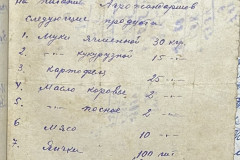 на питание Агросанитаршов
следующие продукты
1. Муки Ячменной 30 кгр.
2. -"- кукурузной 15 -"-
3 картофель 25 -"-
4. Масло коровье 2 -"-
5 -"- постное 2 -"-
6 Мясо 10 -"-
7. Яички 100 шт